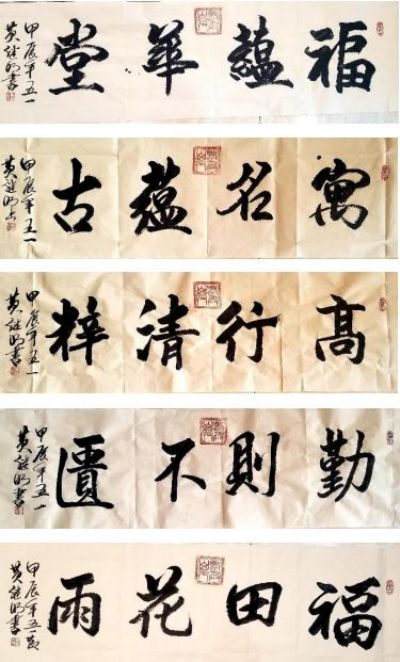 福蘊華堂
甲辰年五一
黄書
寓名蘊古
甲辰年五一
黄
高行清粹
甲辰年五一
黄書
勤則不匱
甲辰年五一
黄書
福田花雨
甲辰年五一
黄書